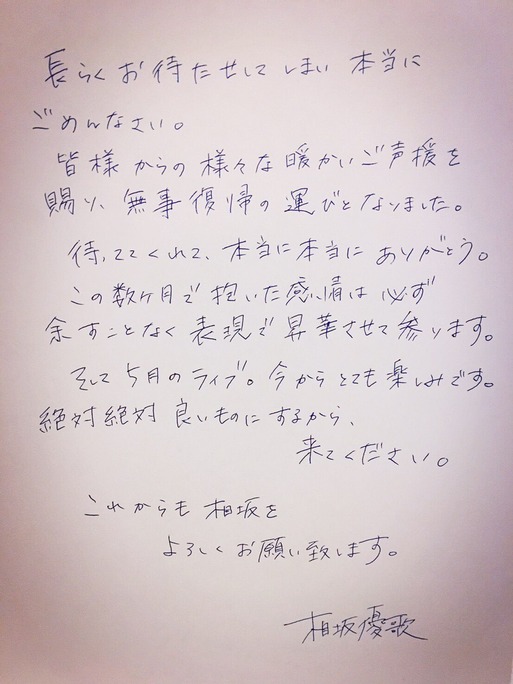 長らくお待たせしてしまい 本当に
ごめんなさい。
皆様からの様々な暖かいご声援を
賜り、無事復帰の運びとなりました。
待ってくれて、本当に本当にありがとう。
この数ヶ月で抱いた感情は必ず
余すことなく表現で昇華させて参ります。
そして5月のライブ。今からとても楽しみです。
絶対絶対 良いものにするから、
来てください。
これからも 相坂を
よろしくお願い致します。
相坂優歌